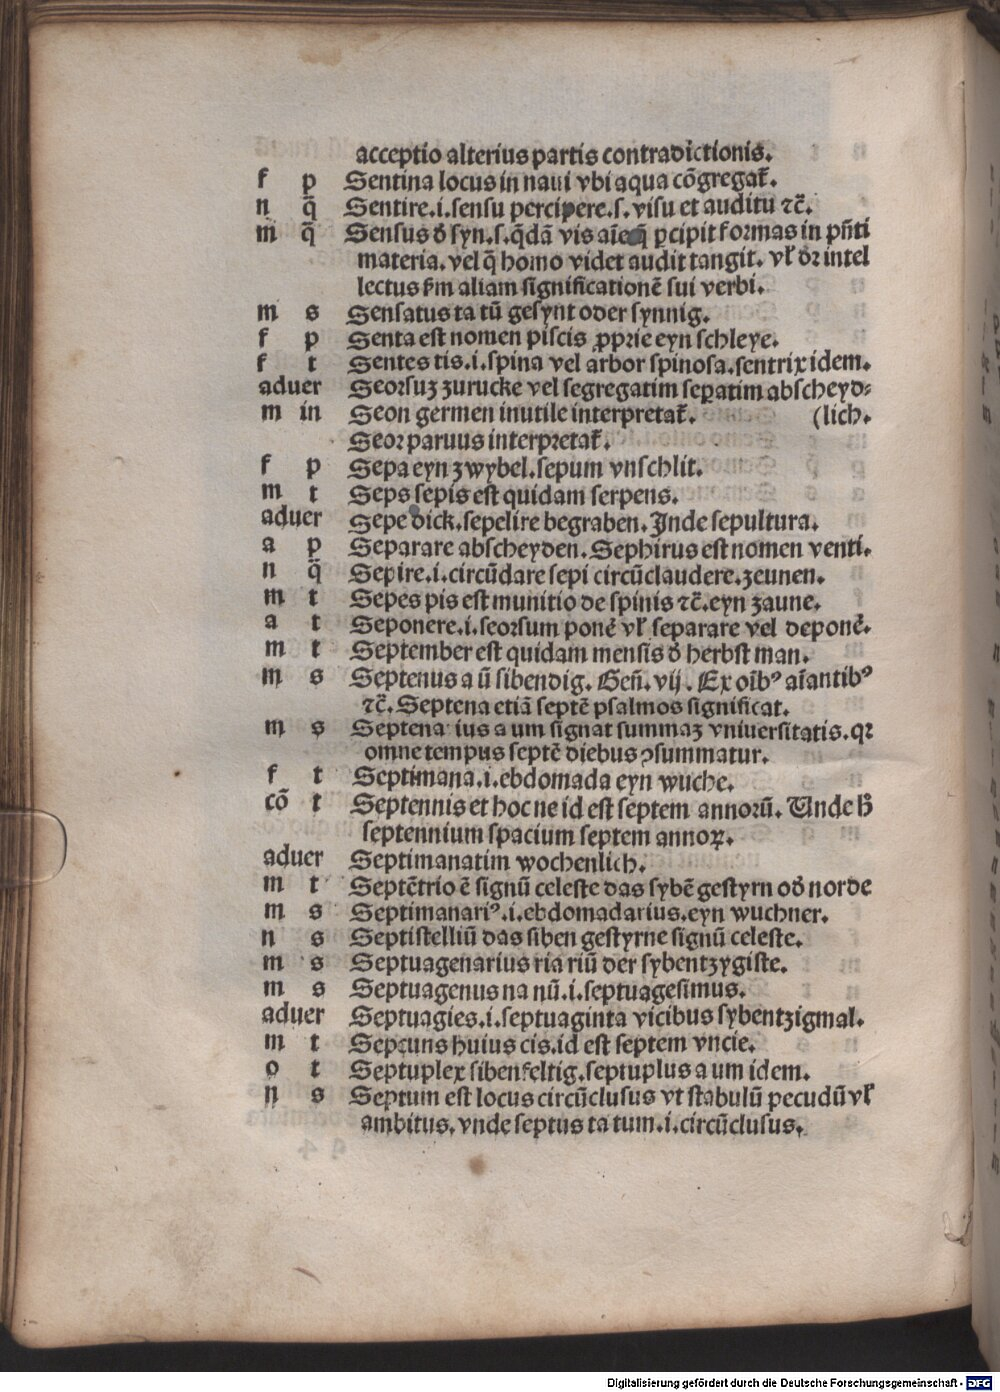 acceptio alterius partis contradictionis.
f p Sentina locus in naui vbi aqua cōgregat᷑.
n q̄ Sentire.i.sensu percipere.s.visu et auditu ⁊c̄.
m q̄ Sensus ð syn.s.q̄dā vis aīe q̄ ꝑcipit formas in pn̄ti
materia.vel q̄ homo videt audit tangit. vl̓ dr̄ intel
lectus ẜm aliam significationē sui verbi.
m s Sensatus ta tū gesynt oder synnig.
f p Senta est nomen piscis ꝓprie eyn schleye.
f t Sentes tis.i.spina vel arbor spinosa.sentrix idem.
aduer Seorsuz zurucke vel segregatim seꝑatim abscheyd⸗
m in Seon germen inutile interpretat᷑. (lich.
Seor paruus interpretat᷑.
f p Sepa eyn zwybel.sepum vnschlit.
m t Seps sepis est quidam serpens.
aduer Sepe dick.sepelire begraben. Inde sepultura.
a p Separare abscheyden. Sephirus est nomen venti.
n q̄ Sepire.i.circūdare sepi circūclaudere.zeunen.
m t Sepes pis est munitio de spinis ⁊c̄.eyn zaune.
a t Seponere.i.seorsum ponē vl̓ separare vel deponē.
m t September est quidam mensis ð herbst man.
m s Septenus a ū sibendig. Gen̄. vij. Ex oībꝰ aīantibꝰ
⁊c̄. Septena etiā septē psalmos significat.
m s Septena ius a um signat summaz vniuersitatis.qꝛ
omne tempus septē diebus ꝯsummatur.
f t Septimana.i.ebdomada eyn wuche.
cō t Septennis et hoc ne id est septem annorū. Unde h̄
septennium spacium septem annoꝝ.
aduer Septimanatim wochenlich.
m t Septētrio ē signū celeste das sybē gestyrn oð norde
m s Septimanariꝰ.i.ebdomadarius.eyn wuchner.
n s Septistelliū das siben gestyrne signū celeste.
m s Septuagenarius ria riū der sybentzygiste.
m s Septuagenus na nū.i.septuagesimus.
aduer Septuagies.i.septuaginta vicibus sybentzigmal.
m t Sepcuns huius cis.id est septem vncie.
o t Septuplex sibenfeltig.septuplus a um idem.
n s Septum est locus circūclusus vt stabulū pecudū vl̓
ambitus. vnde septus ta tum.i.circūclusus.
Digitalisierung gefördert durch die Deutsche Forschungsgemeinschaft - DFG